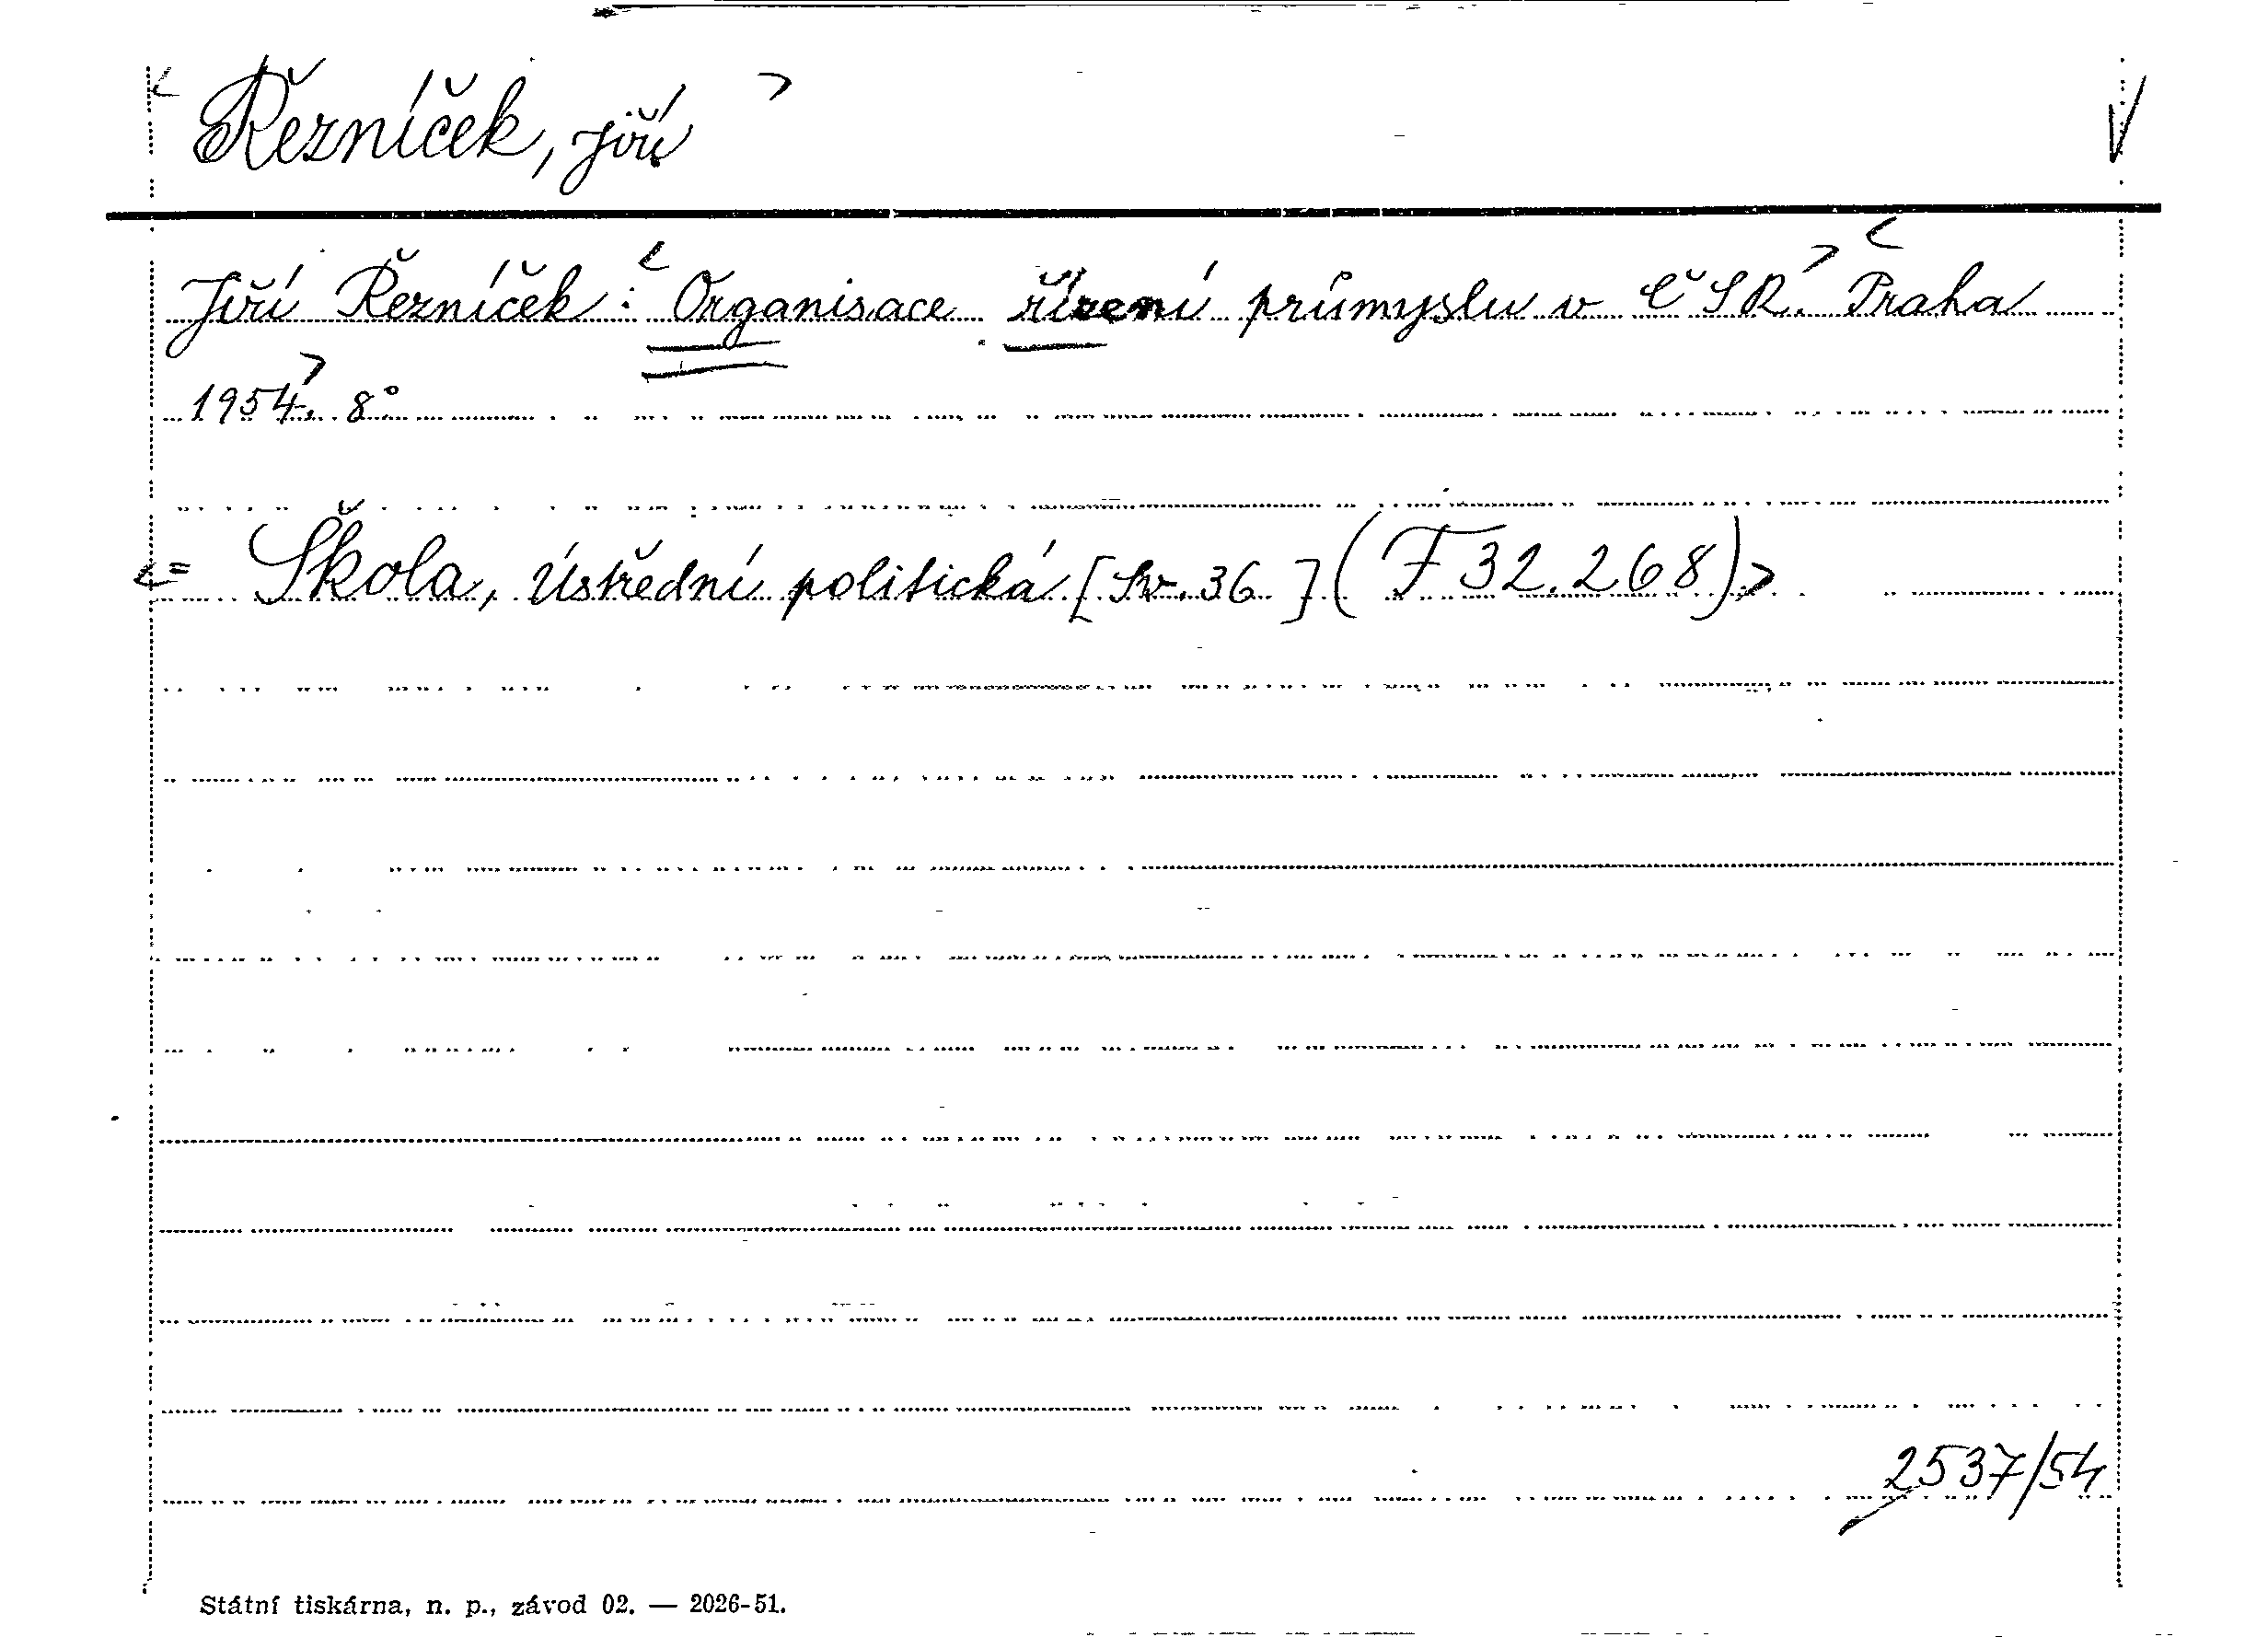 < Řezníček, Jiří >
Jiří Řezníček: <Organisace řízení průmyslu v ČSR.> <Praha
1954.> 8°
<= Škola, Ústřední politická [Sv. 36 ] (F 32.268)>
2537/54
Státní tiskárna, n. p., závod 02. — 2026-51.